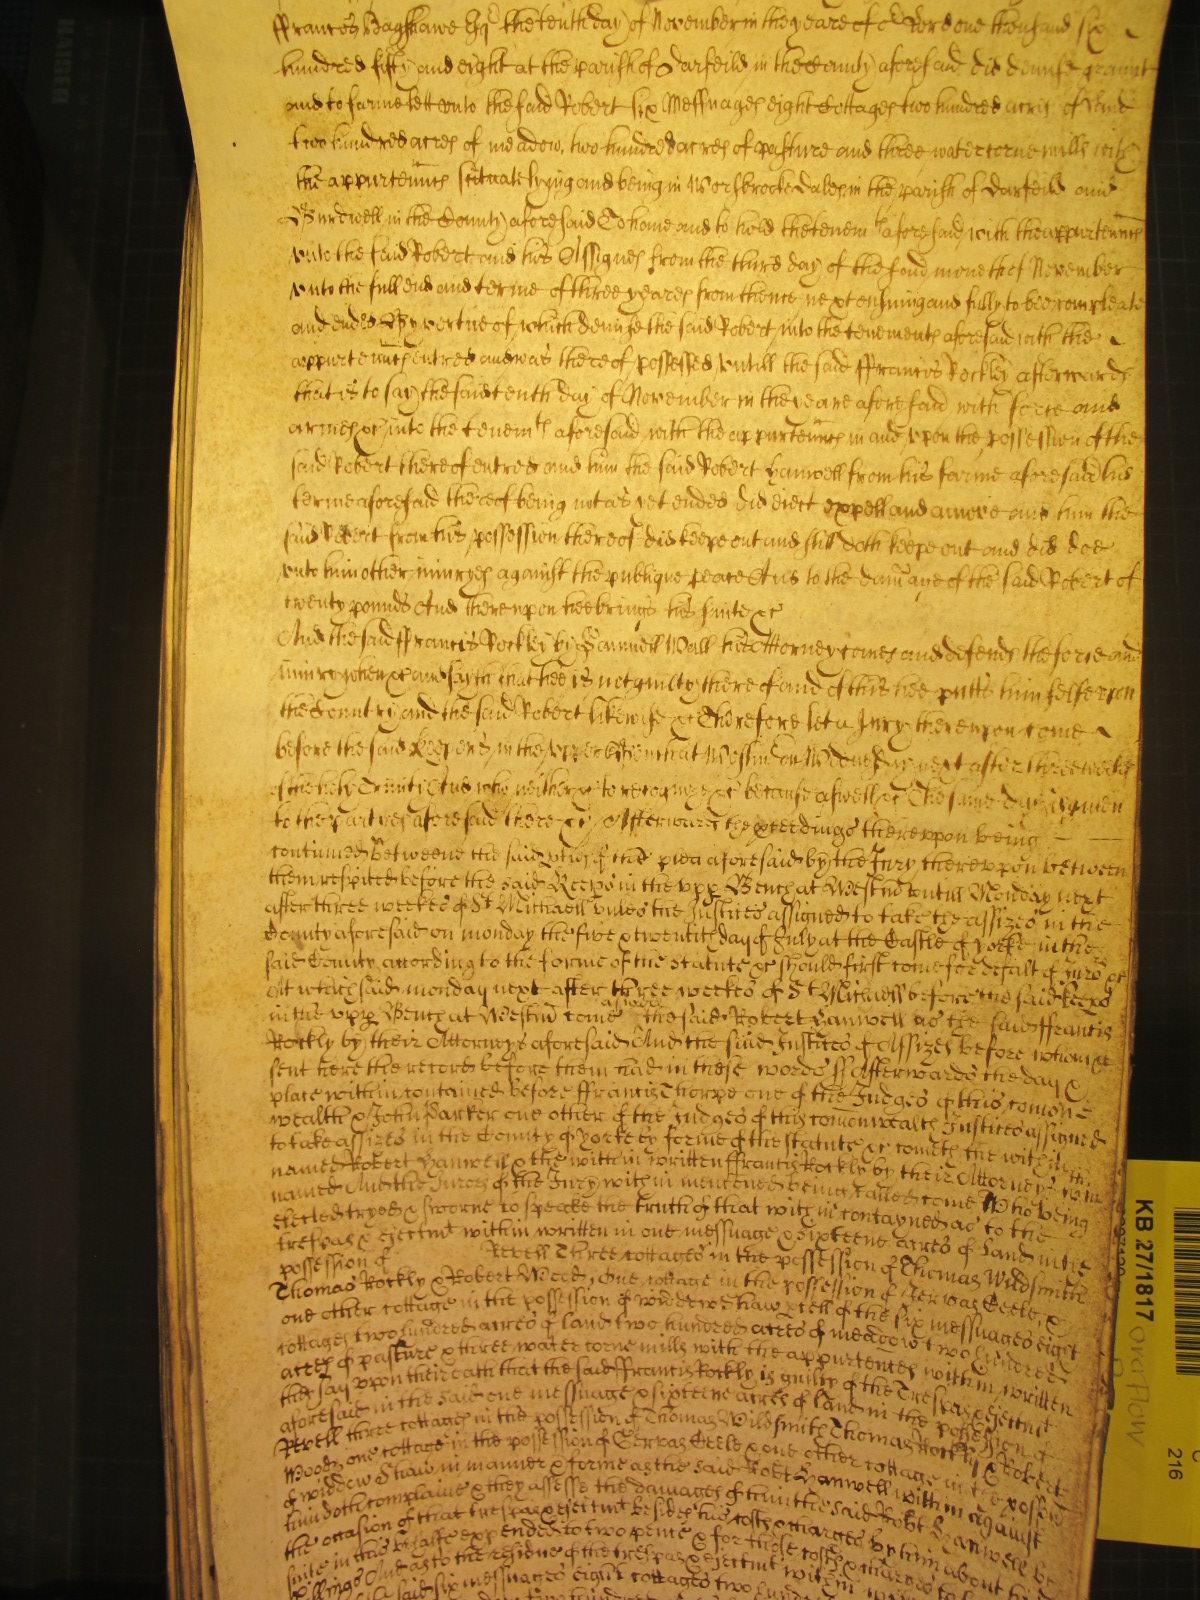 ffrancis Bagshawe Esqr the tenth day of November in the yeare of or Lord one thousand six
hundred fifty and eight at the parish of Darfeild in the County aforesaid did demise graunt
and to farme lett unto the said Robert six Messuages eight Cottages two hundred acres of land
two hundred acres of meadow, two hundred acres of pasture and three water corne mills with
the appurtennces scituate lying and being in Worsbrocke dale in the parish of Darfeild and
in the County aforesaid To have and to hold the tenemts aforesaid with the appurtennces
unto the said Robert and his Assignes from the third day of the said moneth of November
unto the full end and terme of three yeares from thence next ensuing and fully to bee compleate
and ended By vertue of which demise the said Robert into the tenements aforesaid with the
appurtennces entred and was thereof possessed untill the said ffrancis Rockley afterwards
that is to say the said tenth day of November in the yeare aforesaid with force and
armes &c into the tenemts aforesaid with the appurtennces in and upon the possession of the
said Robert thereof entred and him the said Robert Hanwell from his farme aforesaid his
terme aforesaid thereof being not as yet ended did eiect expell and amove and him the
said Robert from his possession thereof did keepe out and still doth keepe out and did doe
unto him other iniuryes against the publique peace And to the damage of the said Robert of
twenty pounds And thereupon hee brings his suite &c
And the said ffrancis Rockley by Samuell Wall his Attorney comes and defends the force and
iniury when &c and saith that hee is not guilty thereof and of this hee putts himselfe upon
the Country and the said Robert likewise &c Therefore let a Jury thereupon come
before the said Keepers in the upper Bench at Westmr on Wednesday next after three weekes
of the holy Trinity And who neither &c to recognize &c because aswell &c The same day is given
to the partyes aforesaid there &c Afterwards the proceedings thereuppon being
continued Betweene the said ptyes of the plea aforesaid by the Jury thereuppon between
them respited before the said Keeps in the upp Bench at Westmr untill Monday next
after three weekes of St Michaell unles the Justices assigned to take the assizes in the
County aforesaid on monday the five & twentith day of July at the Castle of Yorke in the
said County according to the forme of the statute &c should first come for default of Jurors &c
At which said monday next after three weekes of St Michaell before the said Keeps
in the upp Bench at Westmr come aswell the said Robert Hanwell as the said ffrancis
Rockly by their Attorneys aforesaid And the said Justices of Assizes before whom &c
sent here the record before them had in these words ss Afterwards the day &
place within contained before ffrancis Thorpe one of the Judges of this comon
wealth & John Parker one other of the Judges of this comonwealth Justices assigned
to take assizes in the County of Yorke by forme of the statute &c cometh the within
named Robert Hanwell & the within written ffrancis Rockly by their Attorneys within
named And the Jurors of the Jury within menconed being called come Who being
elected tryed & sworne to speake the truth of that within contayned as to the
trespas & ejectmt within written in one messuage & sixteene acres of land in the
possession of Revell Three cottages in the possession of Thomas Wildsmith
Thomas Rockly & Robert Wood, One cottage in the possession of Gervas Ceele, &
one other cottage in the possession of widdow Shaw pcell of the six messuages eight
cottages two hundred acres of land two hundred acres of meadow two hundred
acres of pasture & three water corne mills with the appurtences within written
they say upon their oath that the said ffrancis Rockly is guilty of the Trespas & ejectmt
aforesaid in the said one messuage & sixteene acres of land in the possession of
Revell three cottages in the possession of Thomas Wildsmith Thomas Rockly & Robert
Wood, one cottage in the possession of Gervas Ceele & one other cottage in the possession
of widdow Shaw in manner & forme as the said Robt Hanwell within against
him doth complaine & they assesse the damages of him the said Robt Hanwell by
the occasion of that trespas & ejectmt besides his costs & charges by him about his
suite in this behalfe expended to two pence & for those costs & charges to
shillings And as to the residue of the trespas & ejectmt within
said six messuages eight cottages two hundred
KB 27/1817
overflow
216